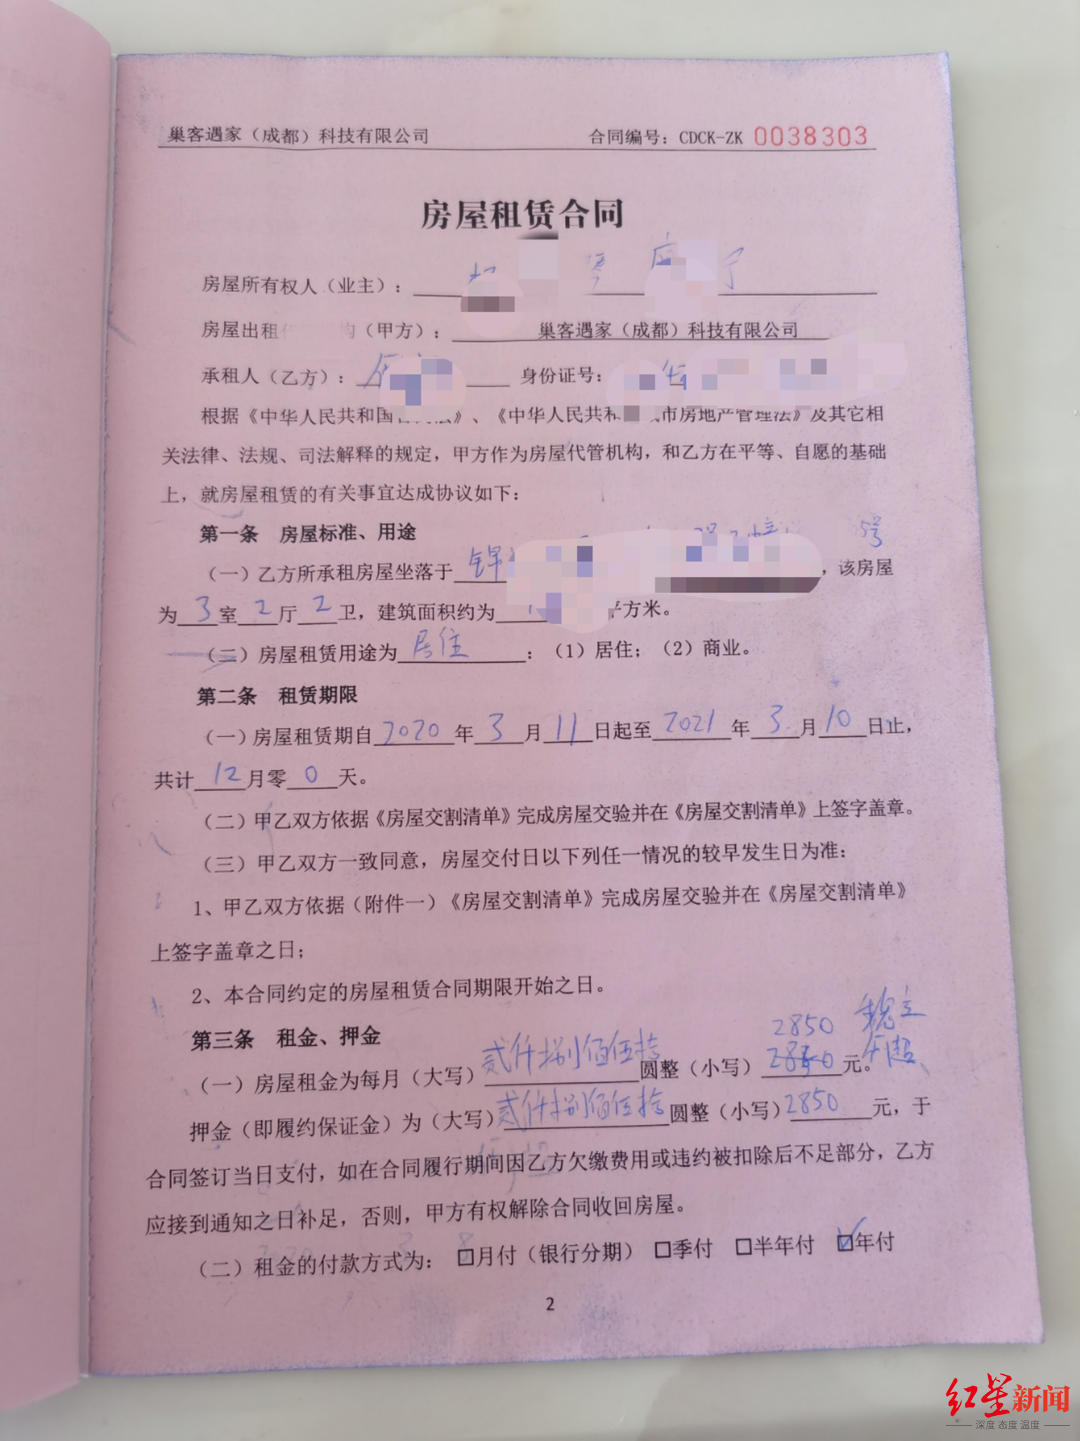 巢客遇家（成都）科技有限公司 合同编号：CDCK-ZK 0038303
房屋租赁合同
房屋所有权人（业主）：
房屋出租 （甲方）： 巢客遇家（成都）科技有限公司
承租人（乙方）： 身份证号：
根据《中华人民共和国 》、《中华人民共和 市房地产管理法》及其它相
关法律、法规、司法解释的规定，甲方作为房屋代管机构，和乙方在平等、自愿的基础
上，就房屋租赁的有关事宜达成协议如下：
第一条 房屋标准、用途
（一）乙方所承租房屋坐落于 号，该房屋
为3室2厅2卫，建筑面积约为 平方米。
（二）房屋租赁用途为居住：（1）居住；（2）商业。
第二条 租赁期限
（一）房屋租赁期自2020年3月11日起至2021年3月10日止，
共计12月零0天。
（二）甲乙双方依据《房屋交割清单》完成房屋交验并在《房屋交割清单》上签字盖章。
（三）甲乙双方一致同意，房屋交付日以下列任一情况的较早发生日为准：
1、甲乙双方依据（附件一）《房屋交割清单》完成房屋交验并在《房屋交割清单》
上签字盖章之日；
2、本合同约定的房屋租赁合同期限开始之日。
2850
第三条 租金、押金
（一）房屋租金为每月（大写）贰仟捌佰伍拾圆整（小写）2850元。
押金（即履约保证金）为（大写）贰仟捌佰伍拾圆整（小写）2850元，于
合同签订当日支付，如在合同履行期间因乙方欠缴费用或违约被扣除后不足部分，乙方
应接到通知之日补足，否则，甲方有权解除合同收回房屋。
（二）租金的付款方式为：□月付（银行分期）□季付 □半年付 ☑年付
2
红星新闻
深度 态度 温度